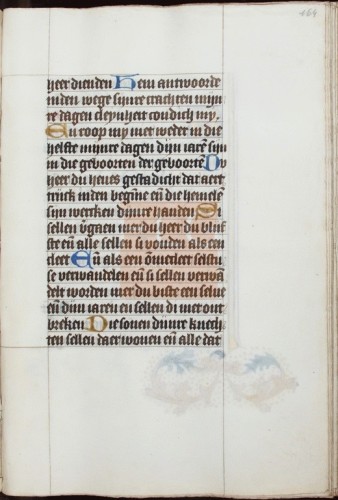 164
heer dienden Hem antwoorde
inden wege sijnre crachten mijn
re dagen cleynheit condich my.
En roop my niet weder in die
helfte mijnre dagen dijn iaren sijn
in die geboorten der geboorten Du
heer du heves gestadicht dat aert
rijck inden beginne en die hemelen
sijn wercken dijnre handen Si
sellen vergaen mer du heer du blijf
ste en alle sellen si vouden als een
cleet En als een overcleet selstu
se verwandelen en si sellen verwan
delt worden mer du biste een selve
en dijn iaren en sellen di niet ont
breken Die sonen dijnre knech
ten sellen daer wonen en alle dat